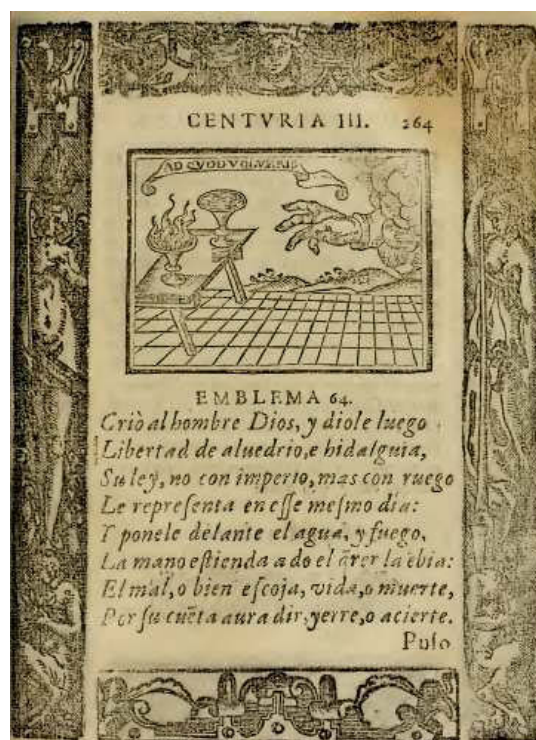 CENTVRIA III. 264
AD QVOD VOLVERIS
EMBLEMA 64.
Criò al hombre Dios, y diole luego
Libertad de aluedrio, e hidalguia,
Su ley, no con imperio, mas con ruego
Le representa en esse mesmo dia:
Y ponele delante el agua, y fuego,
La mano estienda a do el
El mal, o bien escoja, vida, o muerte,
Por su cuẽta aura dir, yerre, o acierte.
Puso